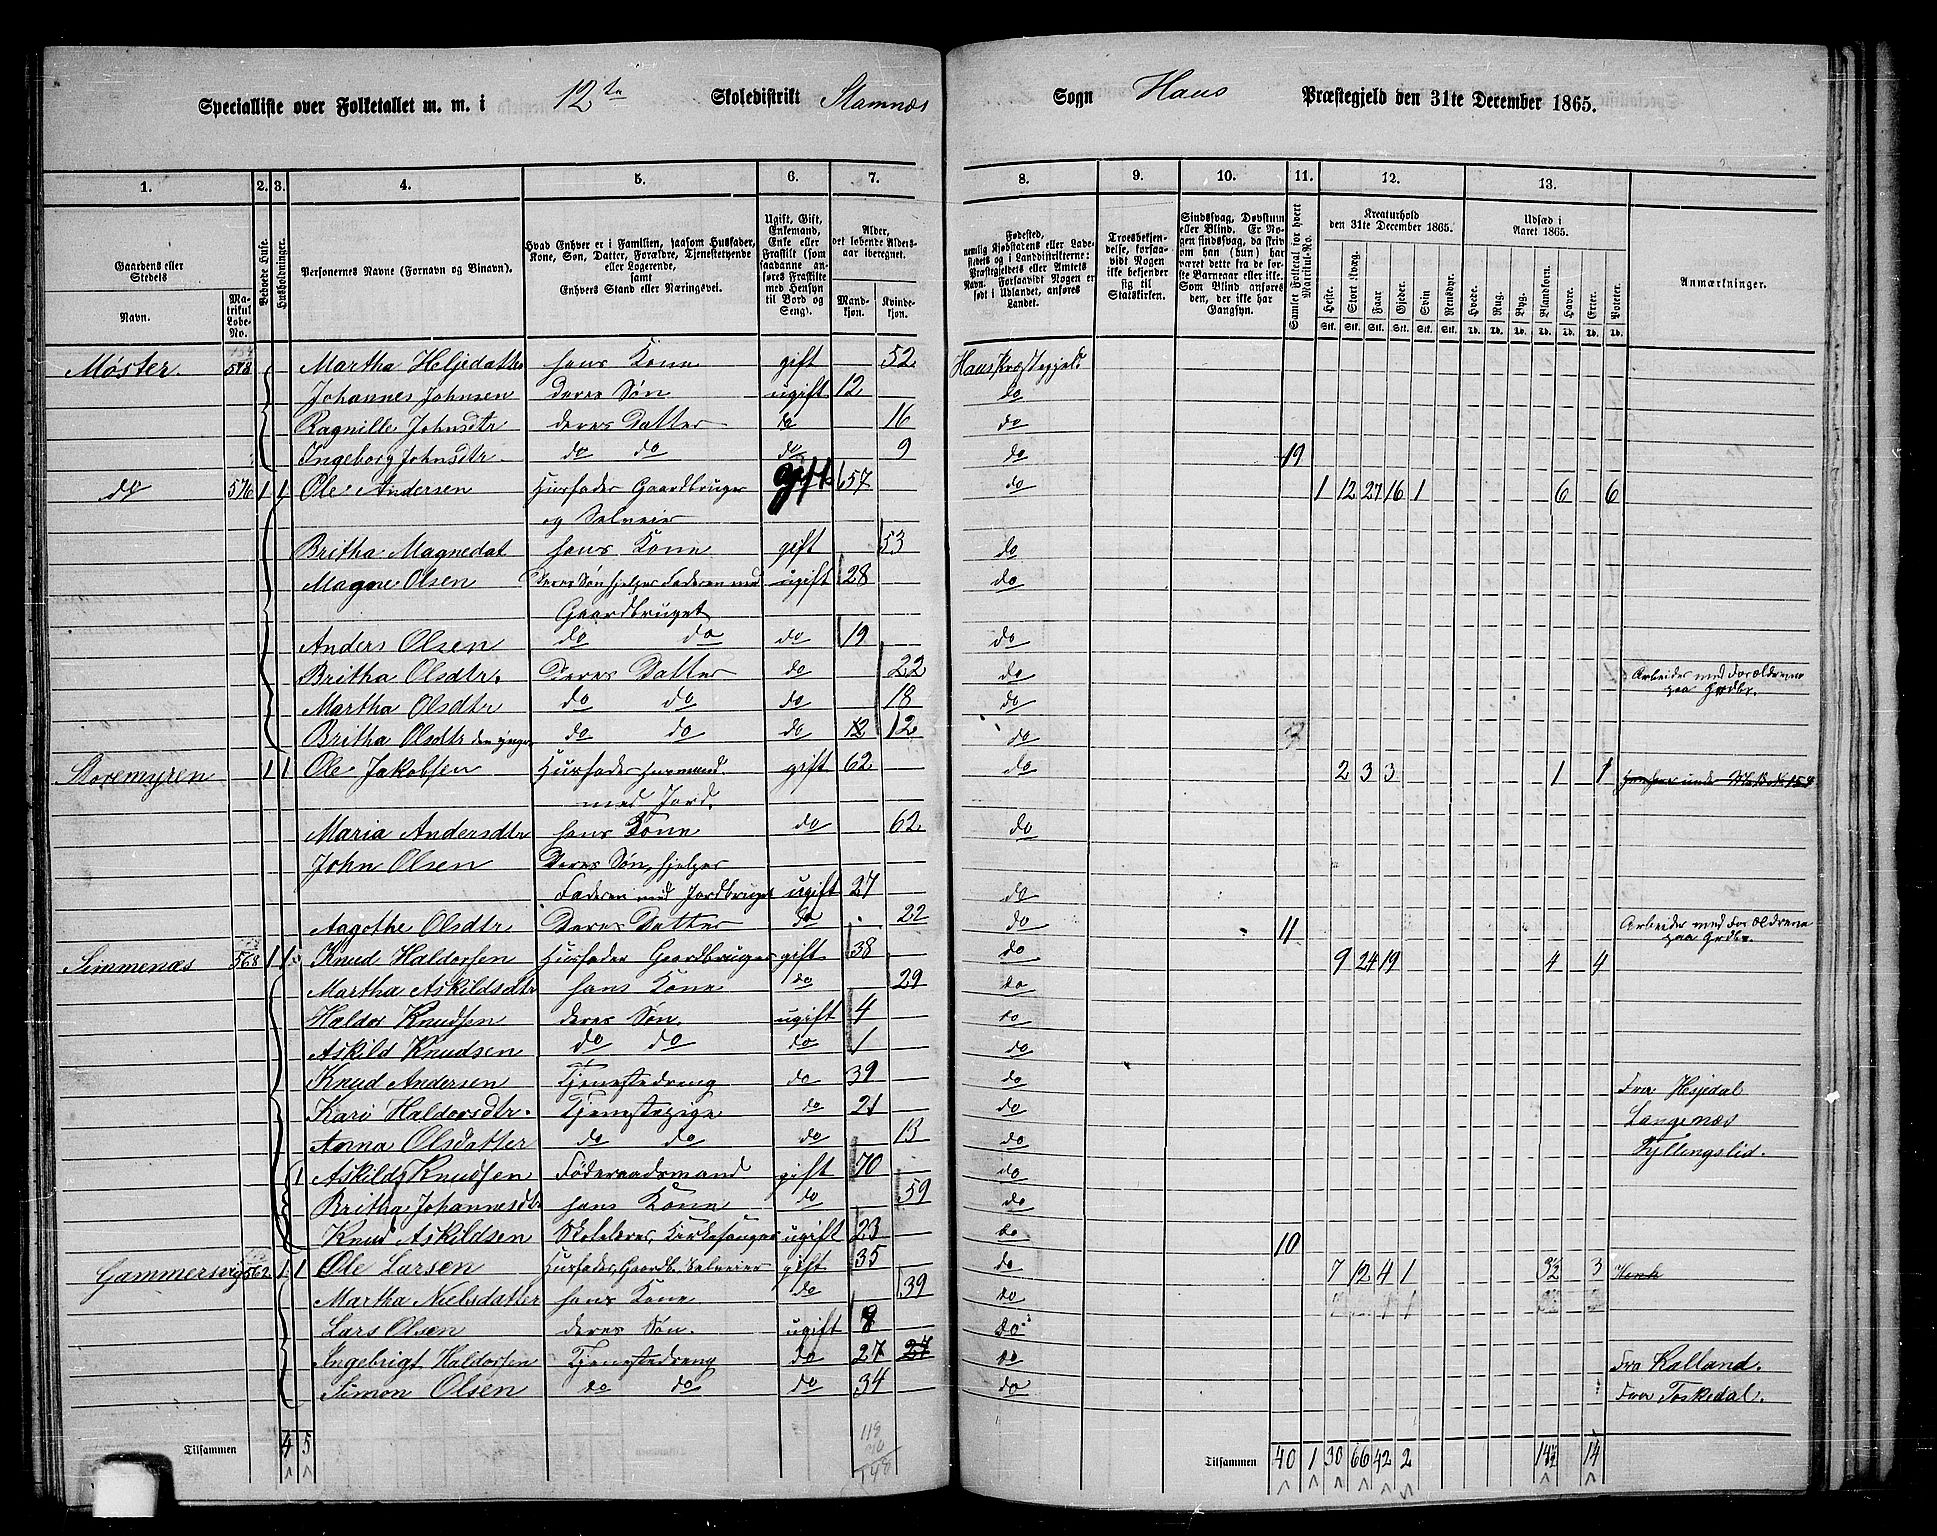 Specialliste over Folketallet m. m. i 12te Skoledistrikt Stamnæs Sogn Haus Præstegjeld den 31te December 1865.
1. 2. 3. 4. 5. 6. 7. 8. 9. 10. 11. 12. 13.
Gaardens eller Stedets
Navn. Matrikul Løbe-No.
Beboede Huse.
Husholdninger.
Personernes Navne (Fornavn og Binavn).
Hvad Enhver er i Familien, saasom Husfader, Kone, Søn, Datter, Forældre, Tjenestetyende eller Logerende, samt Enhvers Stand eller Næringsvei.
Ugift, Gift, Enkemand, Enke eller Fraskilt (som saadanne anføres Fraskilte med Hensyn til Bord og Seng).
Alder, det løbende Aldersaar iberegnet.
Mandkjøn. Kvindekjøn.
Fødested, nemlig Kjøbstadens eller Ladestedets og i Landdistrikterne: Præstegjeldets eller Amtets Navn. Forsaavidt Nogen er født i Udlandet, anføres Landet.
Troesbekjendelse, forsaavidt Nogen ikke bekjender sig til Statskirken.
Sindssvag, Døvstum eller Blind. Er Nogen sindssvag, da skriv om han (hun) har været dette fra de første Barneaar eller ikke. Som Blind anføres den, der ikke har Gangsyn.
Samlet Folketal for hvert Matrikul-No.
Kreaturhold den 31te December 1865.
Heste. Stort Kvæg. Faar. Gjeder. Svin. Rensdyr.
Udsæd i Aaret 1865.
Hvede. Rug. Byg. Blandkorn. Havre. Erter. Poteter.
Anmærkninger.
Møster 578 Martha Heljedatter hans Kone gift 52 Haus Præstegjeld
Johannes Johnsen deres Søn ugift 12 do
Ragnille Johnsdtr deres Datter do 16 do
Ingeborg Johnsdtr do do do 9 do 19
do 576 1 1 Ole Andersen Husfader Gaardbruger gift 57 do 1 12 27 16 1 6 6
og Selveier
Britha Magnedat hans Kone gift 53 do
Magne Olsen Deres Søn hjelper Faderen med ugift 28 do
Gaardbruget
Anders Olsen do do do 19 do
Britha Olsdtr. Deres Datter do 22 do Arbeider med Forældrene
paa Grdbr.
Martha Olsdtr do do do 18 do
Britha Olsdtr den yngre do do do 12 do 7
Storemyren 1 1 Ole Jakobsen Husfader Husmand gift 62 do 2 3 3 1 1
med Jord.
Maria Andersdtr hans Kone do 62 do
John Olsen Deres Søn, hjelper
Faderen med Jordbruget ugift 27 do
Aagothe Olsdtr Deres Datter do 22 do 11 Arbeider med Forældrene
paa Grdbr.
Simmenæs 568 1 1 Knud Haldorsen Husfader Gaardbruger gift 38 do 9 24 19 4 4
Martha Askildsdtr hans Kone do 29 do
Haldor Knudsen deres Søn. ugift 4 do
Askild Knudsen do do do 1 do
Knud Andersen Tjenestedreng do 39 do Fra Hesjedal
Kari Haldorsdtr. Tjenestepige do 21 do Langenæs
Anna Olsdatter do do do 13 do Hyllingslid.
1 Askild Knudsen Føderaadsmand gift 70 do
Britha Johannesdtr hans Kone do 59 do
Knud Askildsen Skolelærer, Kirkesanger ugift 23 do 10
Gammersvig 562 1 1 Ole Larsen Husfader, Gaardb. Selveier gift 35 do 7 12 4 1 3½ 3
Martha Nielsdatter hans Kone do 39 do
Lars Olsen deres Søn. ugift 8 do
Ingebrigt Haldorsen Tjenestedreng do 27 do Fra Kalland.
Simon Olsen do do do 34 do Fra Toskedal.
Tilsammen 4 5 Tilsammen 40 1 30 66 42 2 14½ 14